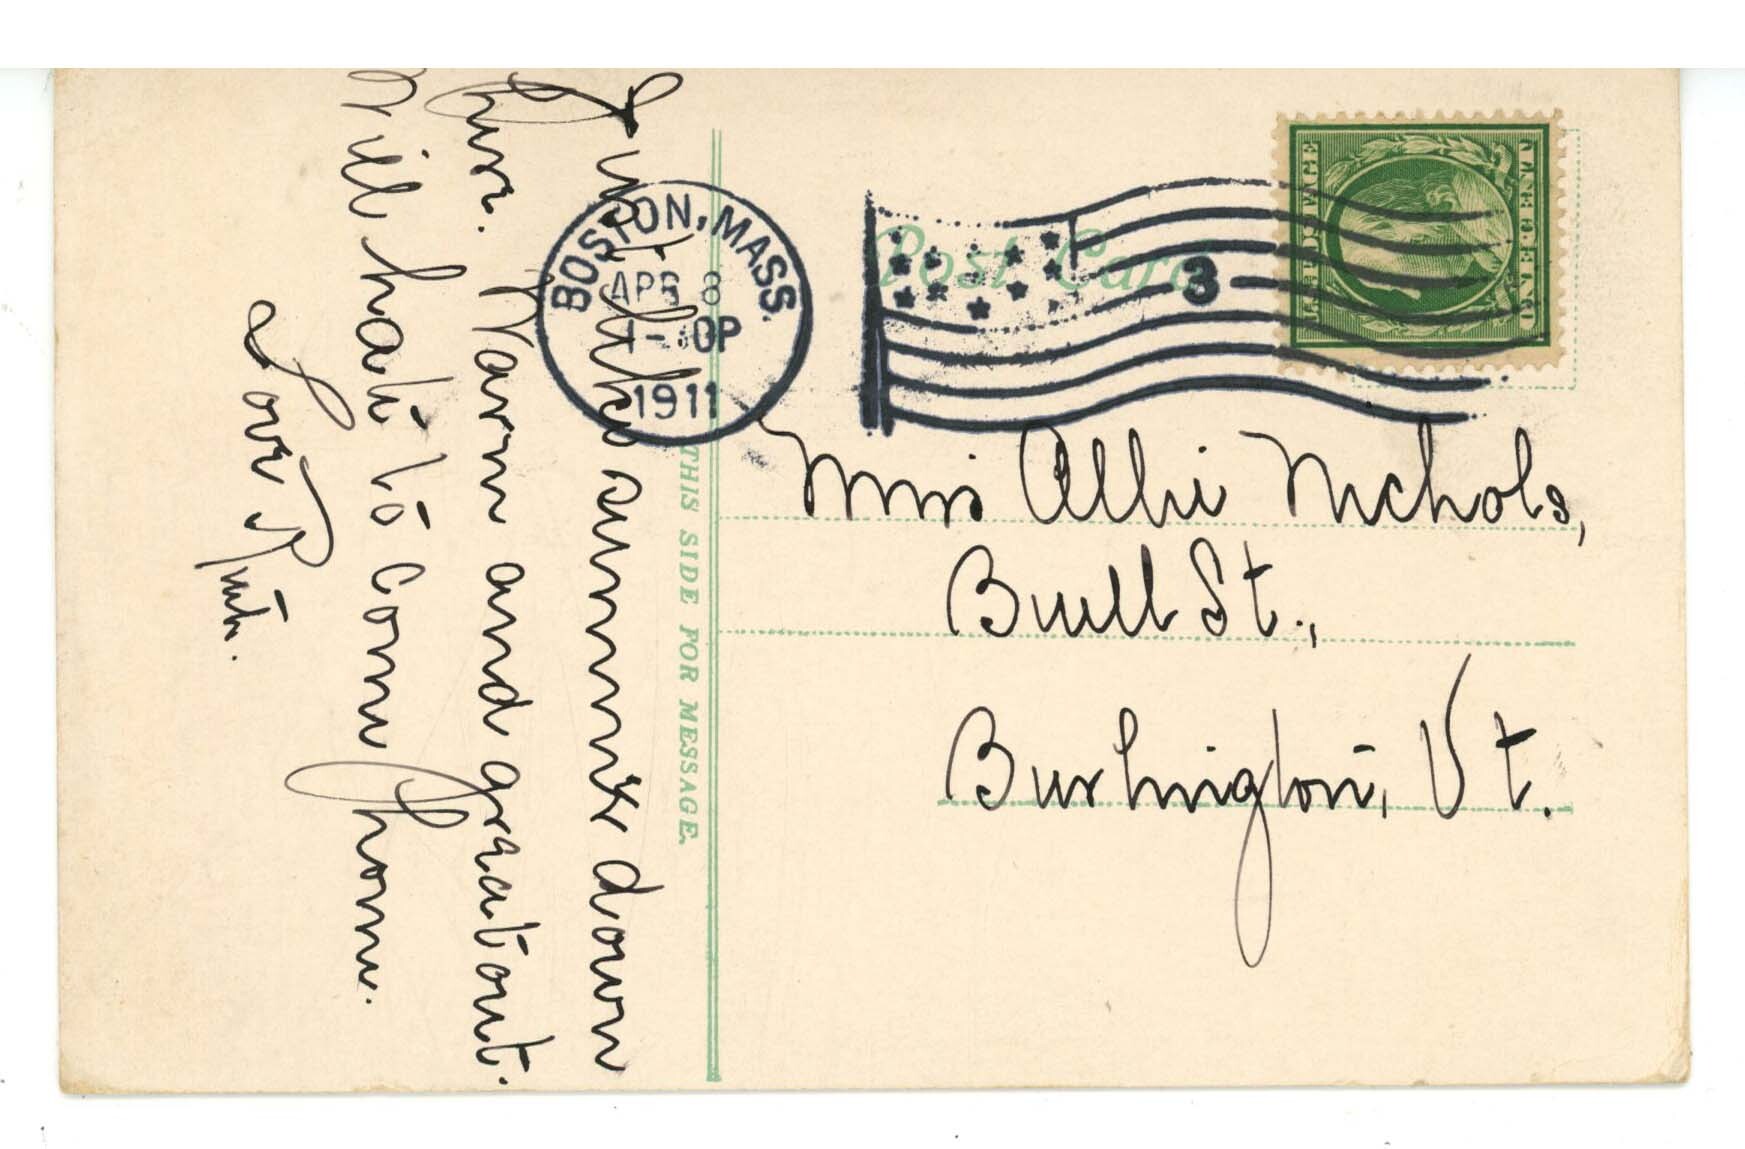 BOSTON, MASS.
APR 8
1-30P
1911
3
U.S. POSTAGE
ONE CENT
Post Card
THIS SIDE FOR MESSAGE.
Just like summer down
here. Warm and great out.
Will hate to come home.
Love Ruth.
Miss Allie Nichols,
Buell St.,
Burlington, Vt.